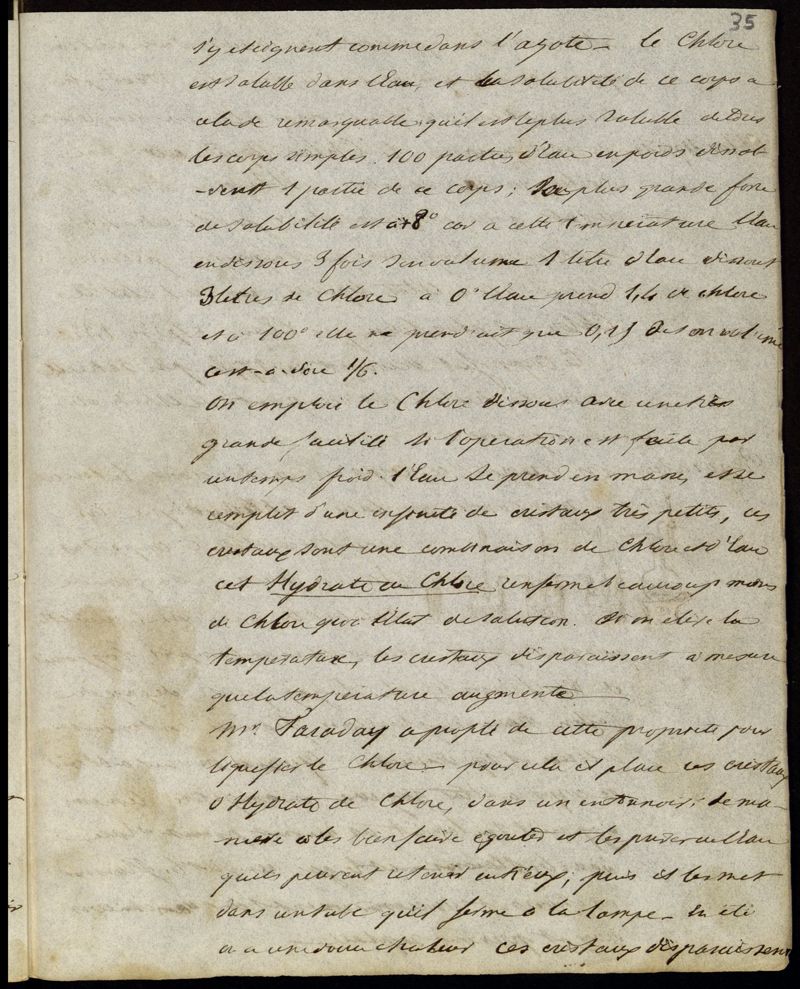 35
s'y eteignent comme dans l'azote – le Chlore
est soluble dans l'Eau, et la solubilité de ce corps a
cela de remarquable qu'il est le plus soluble de tous
les corps simples. 100 parties d'Eau en poids dissol
-vent 1 partie de ce corps; la plus grande force
de solubilité est à +8° car a cette température l'Eau
en dissous 3 fois son volume 1 litre d'Eau dissout
3 litres de Chlore à 0° l'Eau prend 1,4 de chlore
et à 100° elle ne prendrait que 0,15 de son volume
c'est-a-dire 1/6.
On emploie le Chlore dissous avec une très
grande facilité si l'operation est faite par
un temps froid. l'Eau se prend en masse, et se
remplit d'une infinité de cristaux très petits, ces
cristaux sont une combinaison de Chlore et d'Eau
cet Hydrate de Chlore renferme beaucoup moins
de Chlore qu'a l'état de solution. Si on elève la
température, les cristaux disparaissent a mesure
que la température augmente
Mr. Faraday a profité de cette propriété pour
liquefier le Chlore – pour cela il place ces cristaux
d'Hydrate de Chlore, dans un entonnoir de ma-
nière a les bien faire égouter et les priver de l'Eau
qu'ils peuvent retenir entr'eux; puis il les met
dans un tube qu'il ferme a la lampe – En été
ou a une douce chaleur ces cristaux disparaissent